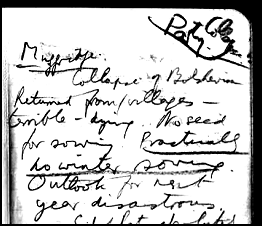 Party Collapse
Muggeridge.
Collapse of Bolshevism
Returned from villages –
terrible – dying. No seed
for sowing. Practically
no winter sowing.
Outlook for next
year disastrous.